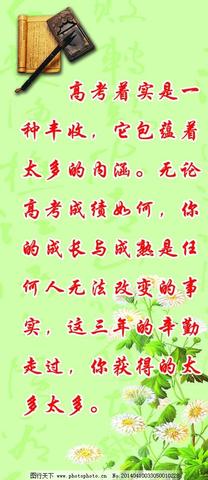 高考着实是一
种丰收，它包蕴着
太多的内涵。无论
高考成绩如何，你
的成长与成熟是任
何人无法改变的事
实，这三年的辛勤
走过，你获得的太
多太多。
图行天下 www.photophoto.cn